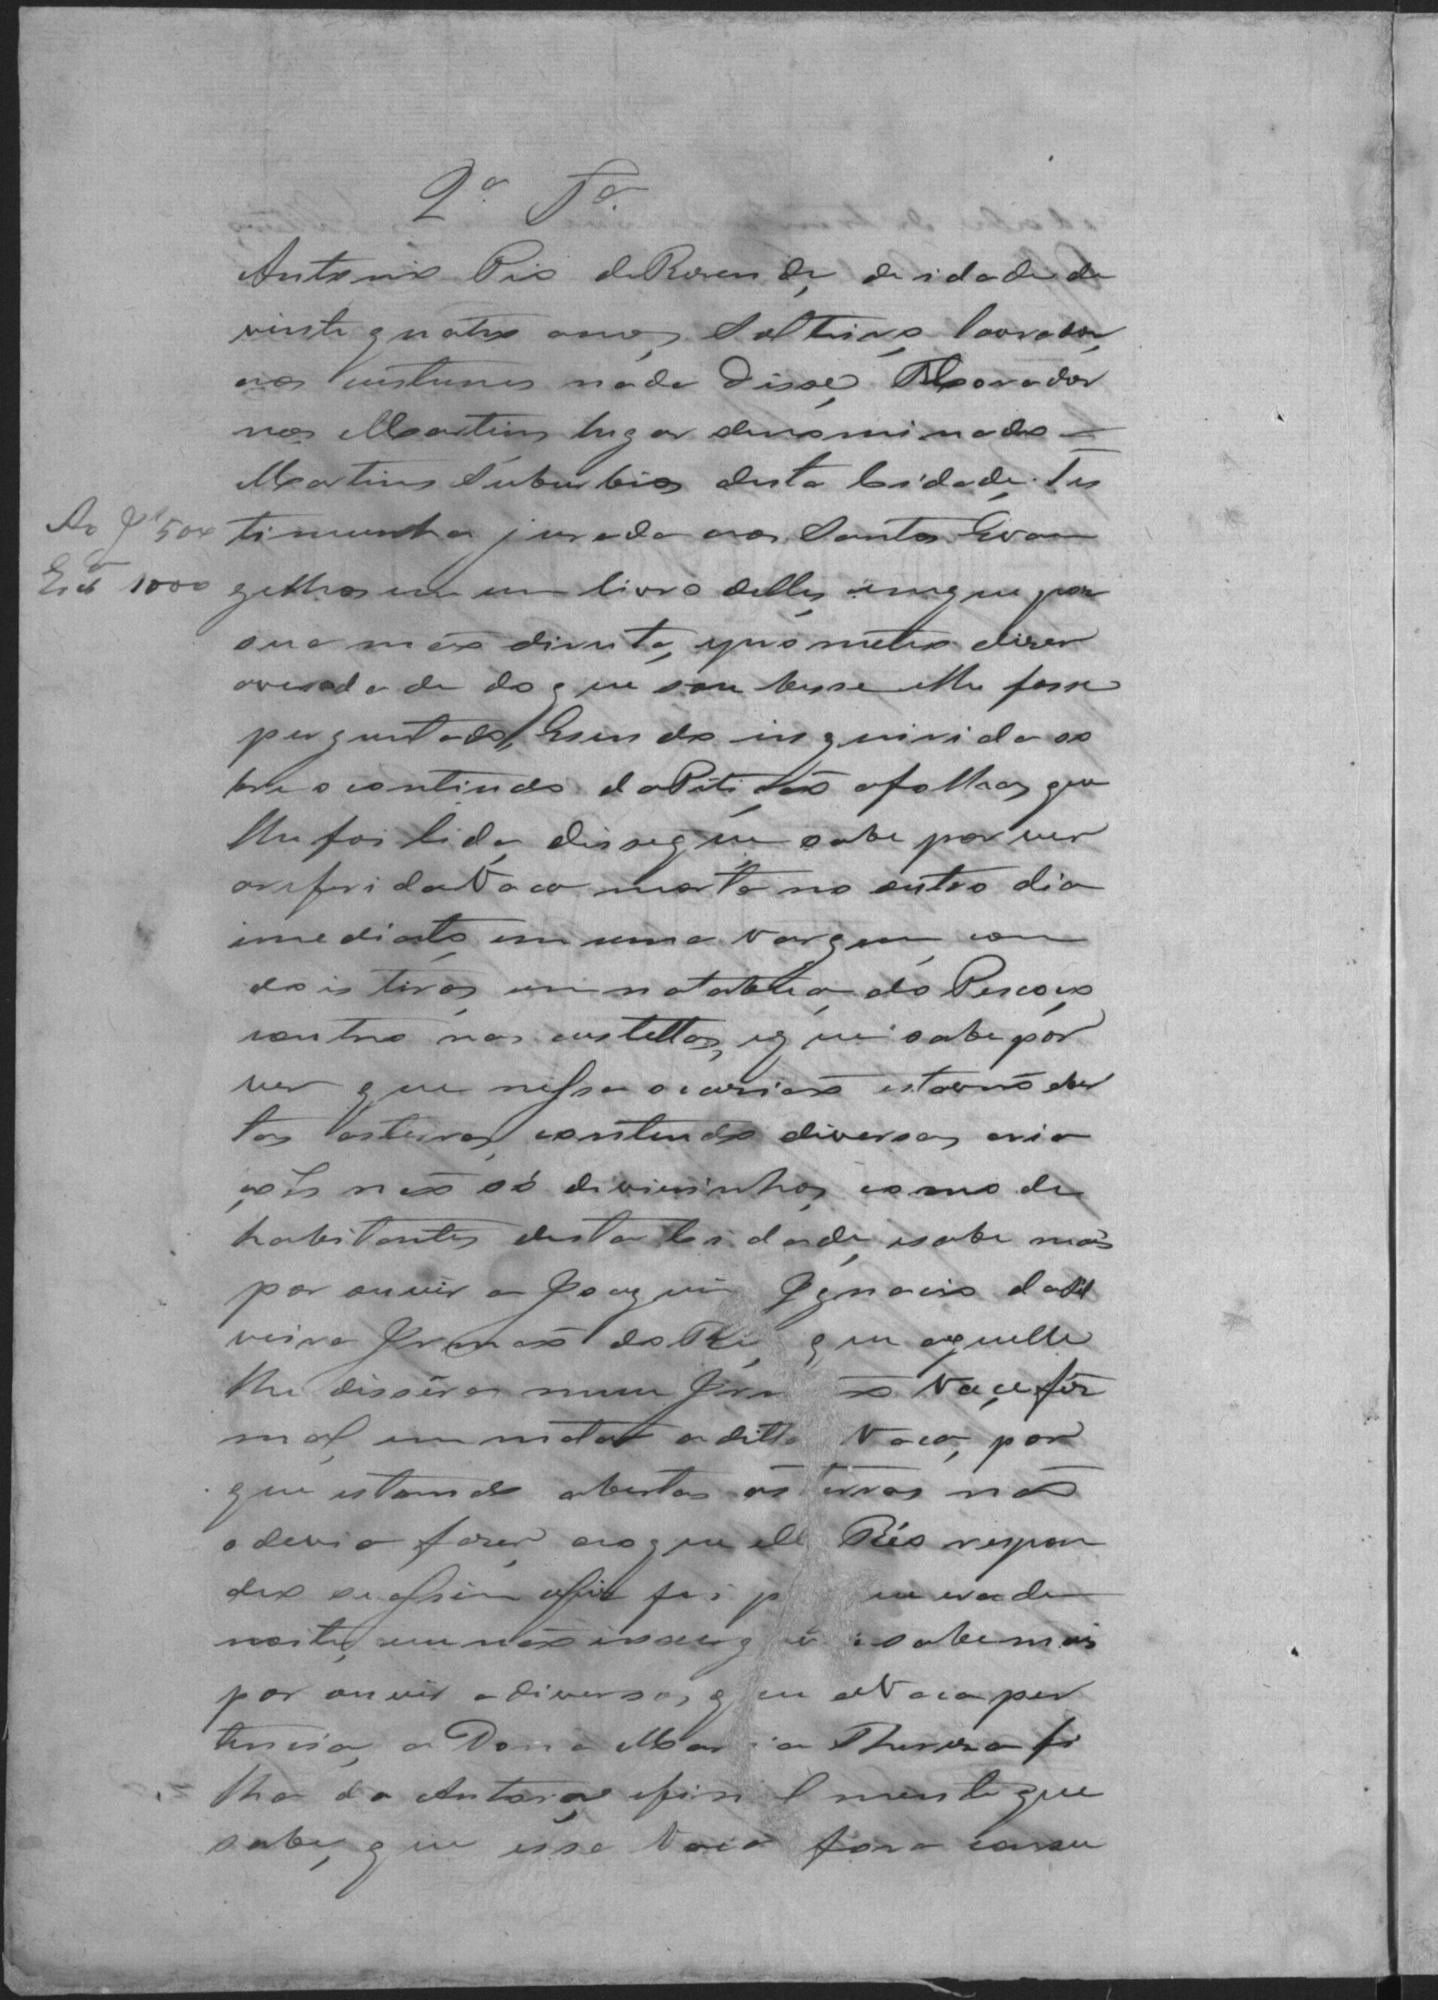 2.ª T.ª
Antonio Pio de Rezende, de idade de
vinte quatro annos, Solteiro, lavrador,
aos custumes nada disse, Morador
nos Martins lugar denominado =
Martins Suburbios desta Cidade. Tes
Ao J.^z 500
timunha jurada aos Santos Evan
Esc^m 1000
gelhos em um livro delles, em que por
sua mão direita, e prometeu dizer
averdade do que soubesse e lhe fosse
perguntado, E sendo inquirida so
bre o contiudo da Petição a folhas, que
lhe foi lida, disse que sabe por ver
areferida Vaca morta no outro dia
imediato, em uma vargem, com
dois tiros, um na tabua do Pescoço
eoutro nas custellas, e que sabe por
ver que nessa ocasião estavão aber
tas as terras, contendo diversas cria
ções não só de vizinhos, como de
habitantes desta Cidade, e sabe mais
por ouvir a Joaquim Ignacio da Sil
veira Irmão do Réo, que aquelle
lhe dissera meu Irmão Você fez
mal, em matar a ditta Vaca, por
que estando abertas as terras não
o devia fazer, ao que elle Réo respon
deo se assim o fiz foi p que era de
noite, eu não enxerguei e sabe mais
por ouvir a diversos, que a Vaca per
tencia, a Dona Maria Thereza fi
lha da Autora, e finalmente que
sabe, que essa Vaca fora